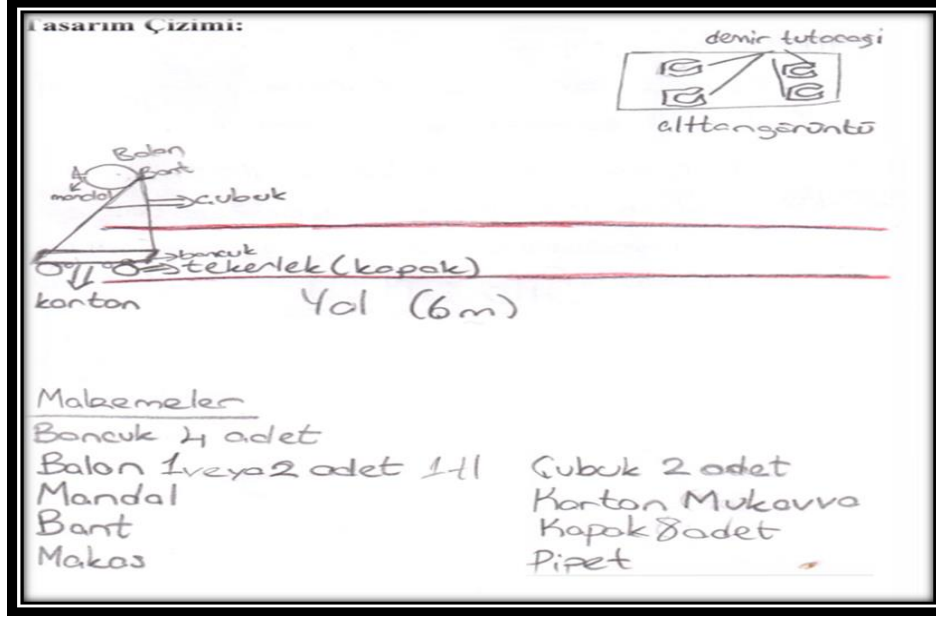 Tasarım Çizimi:
demir tutacağı
alttan görüntü
Balon
Bant
mandal
çubuk
boncuk
tekerlek (kapak)
karton
Yol (6m)
Malzemeler
Boncuk 4 adet
Balon 1 veya 2 adet 1+1
Mandal
Bant
Makas
Çubuk 2 adet
Karton Mukavva
Kapak 8 adet
Pipet